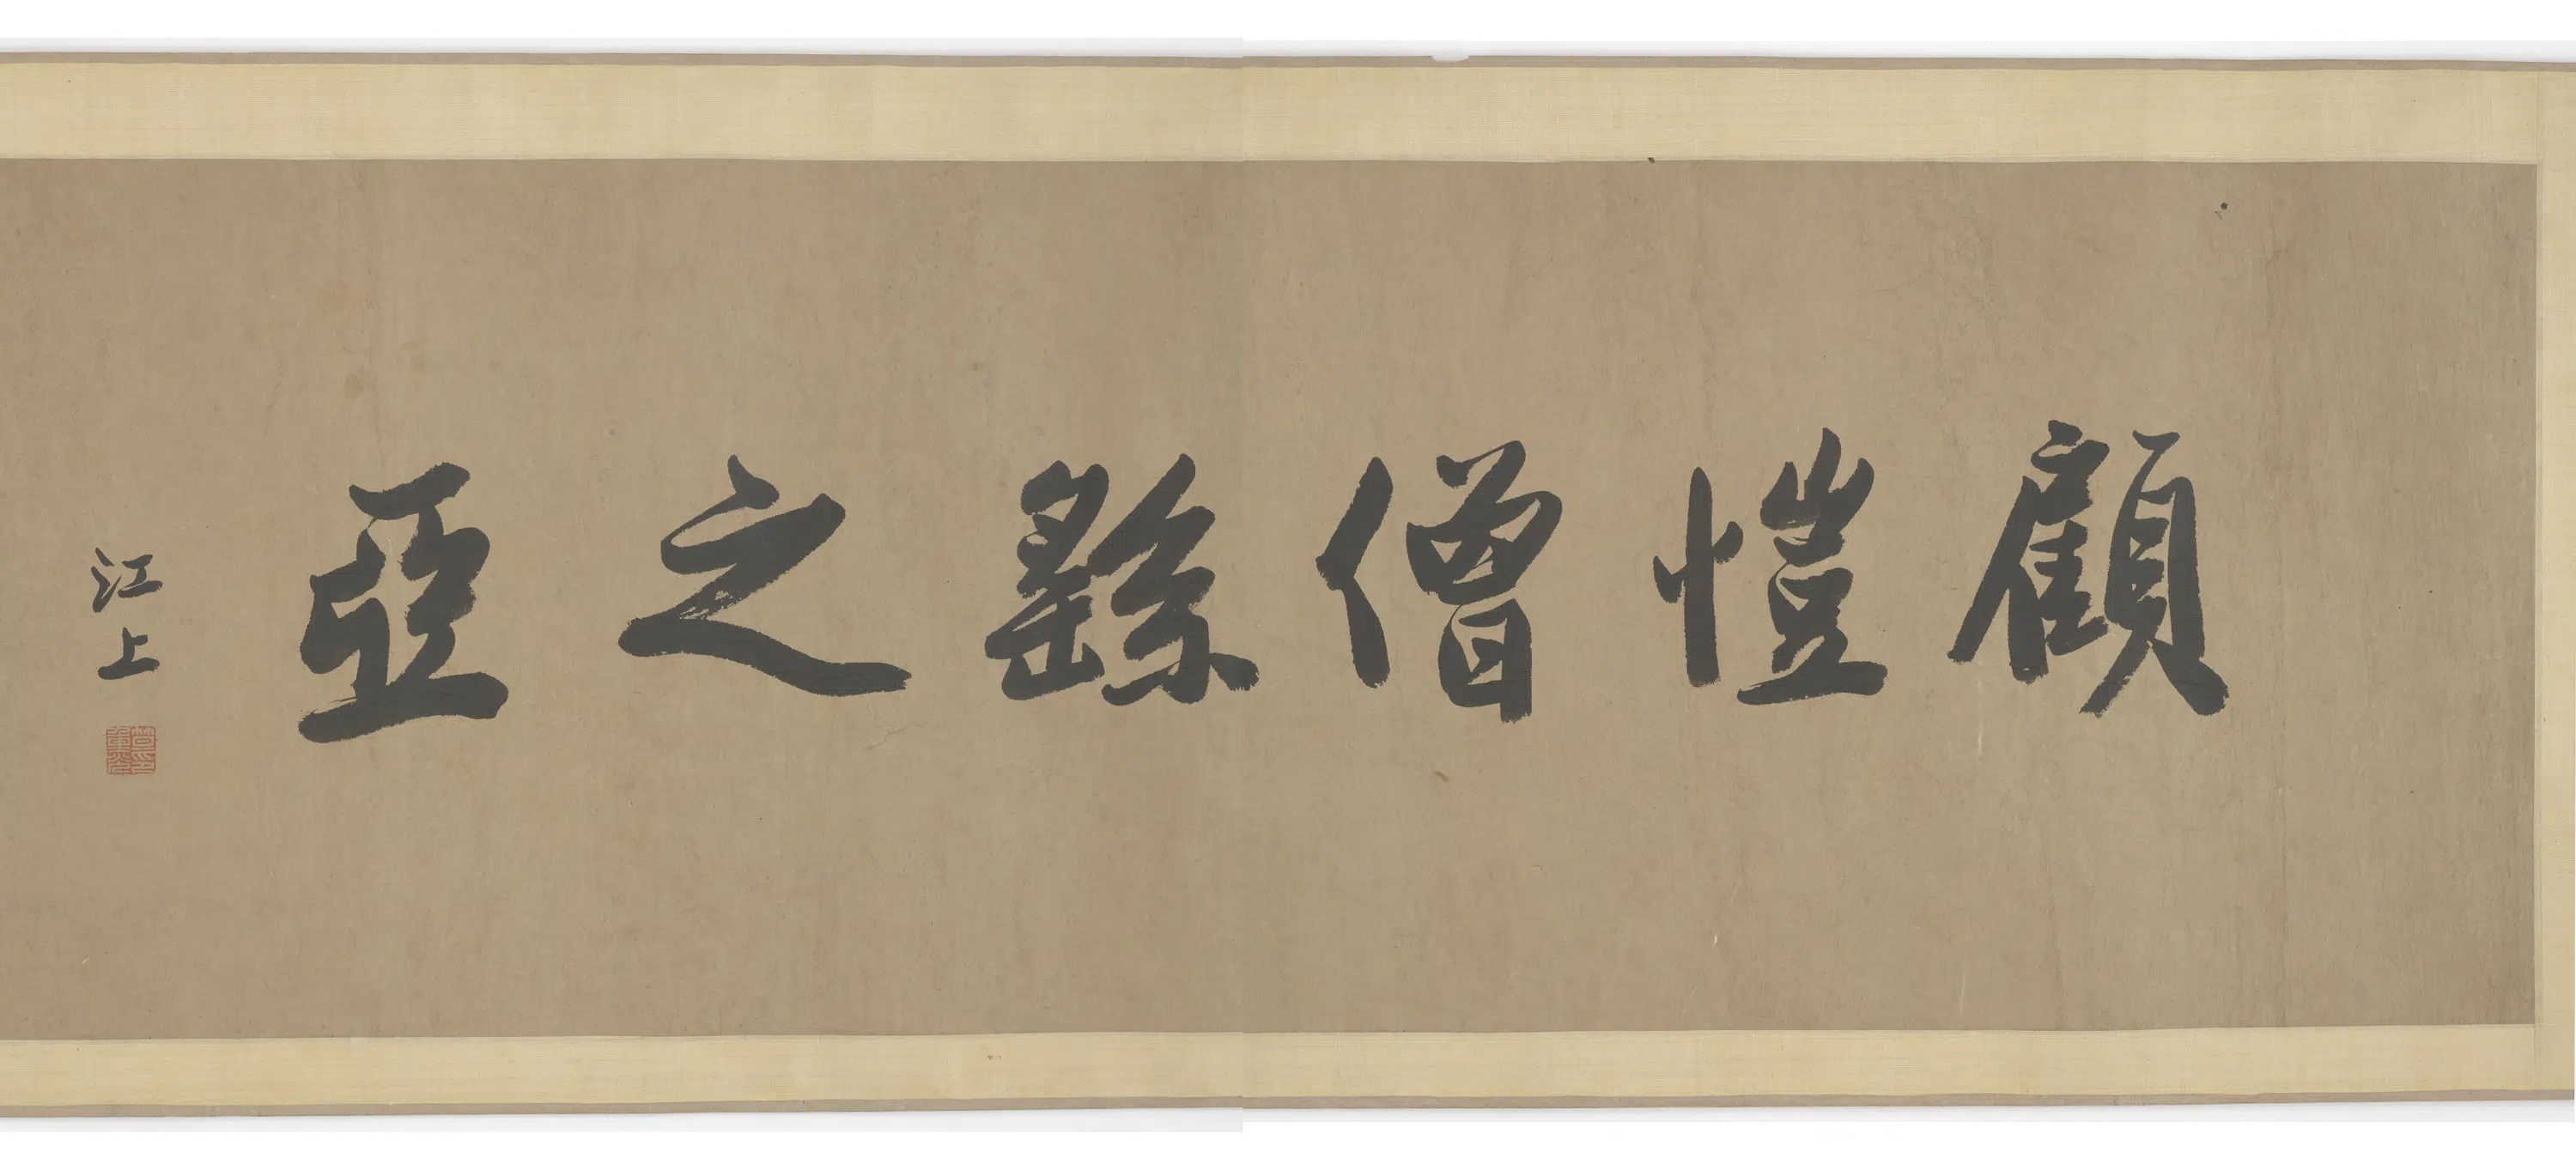 顧愷僧繇之亞
江上